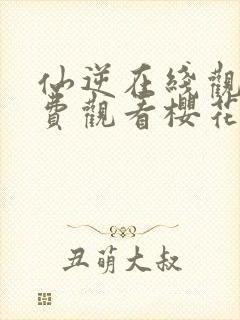 仙逆在綫觀
費觀看櫻花
丑萌大叔